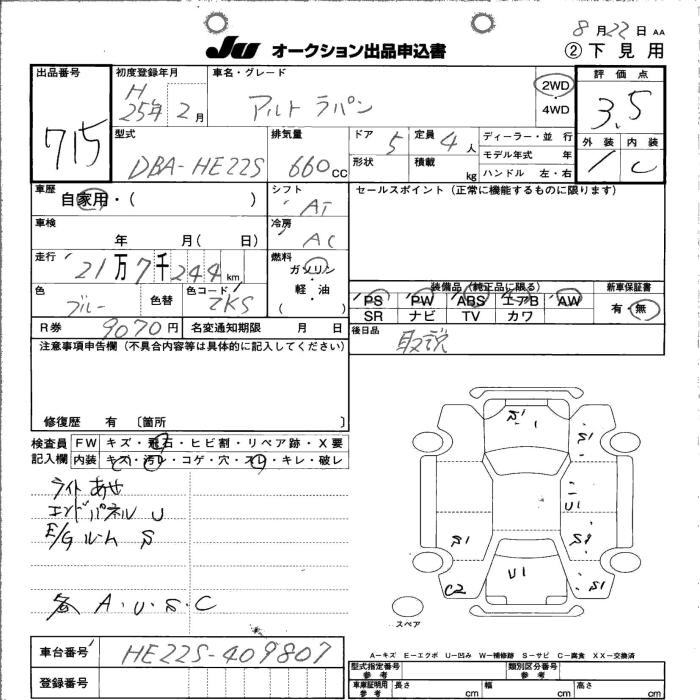 8月22日 AA
JU オークション出品申込書 ②下見用
出品番号 715
初度登録年月 H25年2月
車名・グレード アルト ラパン
2WD
4WD
評価点 3.5
外装 内装
1 C
型式 DBA-HE22S
排気量 660cc
ドア 5
定員 4人
形状
積載 kg
ディーラー・並行
モデル年式 年
ハンドル 左・右
車歴 自家用・( )
シフト AT
セールスポイント(正常に機能するものに限ります)
車検 年 月( 日)
冷房 AC
走行 21万7千244km
燃料 ガソリン・軽・油
( )
色 ブルー
色替
色コード ZKS
装備品(純正品に限る)
PS PW ABS エアB AW
SR ナビ TV カワ
新車保証書
有・無
R券 9070円
名変通知期限 月 日
後日品 取説
注意事項申告欄(不具合内容等は具体的に記入してください)
修復歴 有 [箇所 ]
検査員記入欄
FW キズ・飛石・ヒビ割・リペア跡・X要
内装 キズ・汚レ・コゲ・穴・スレ・キレ・破レ
ライトあせ
エンドパネル U
E/Gルーム S
各 A・U・S・C
S1
S1
U1
S1
S1
U1
C2
S1
スペア
車台番号 HE22S-409807
登録番号
A−キズ E−エクボ U−凹み W−補修跡 S−サビ C−腐食 XX−交換済
型式指定番号 参考
類別区分番号 参考
車庫証明用 参考 長さ cm 幅 cm 高さ cm